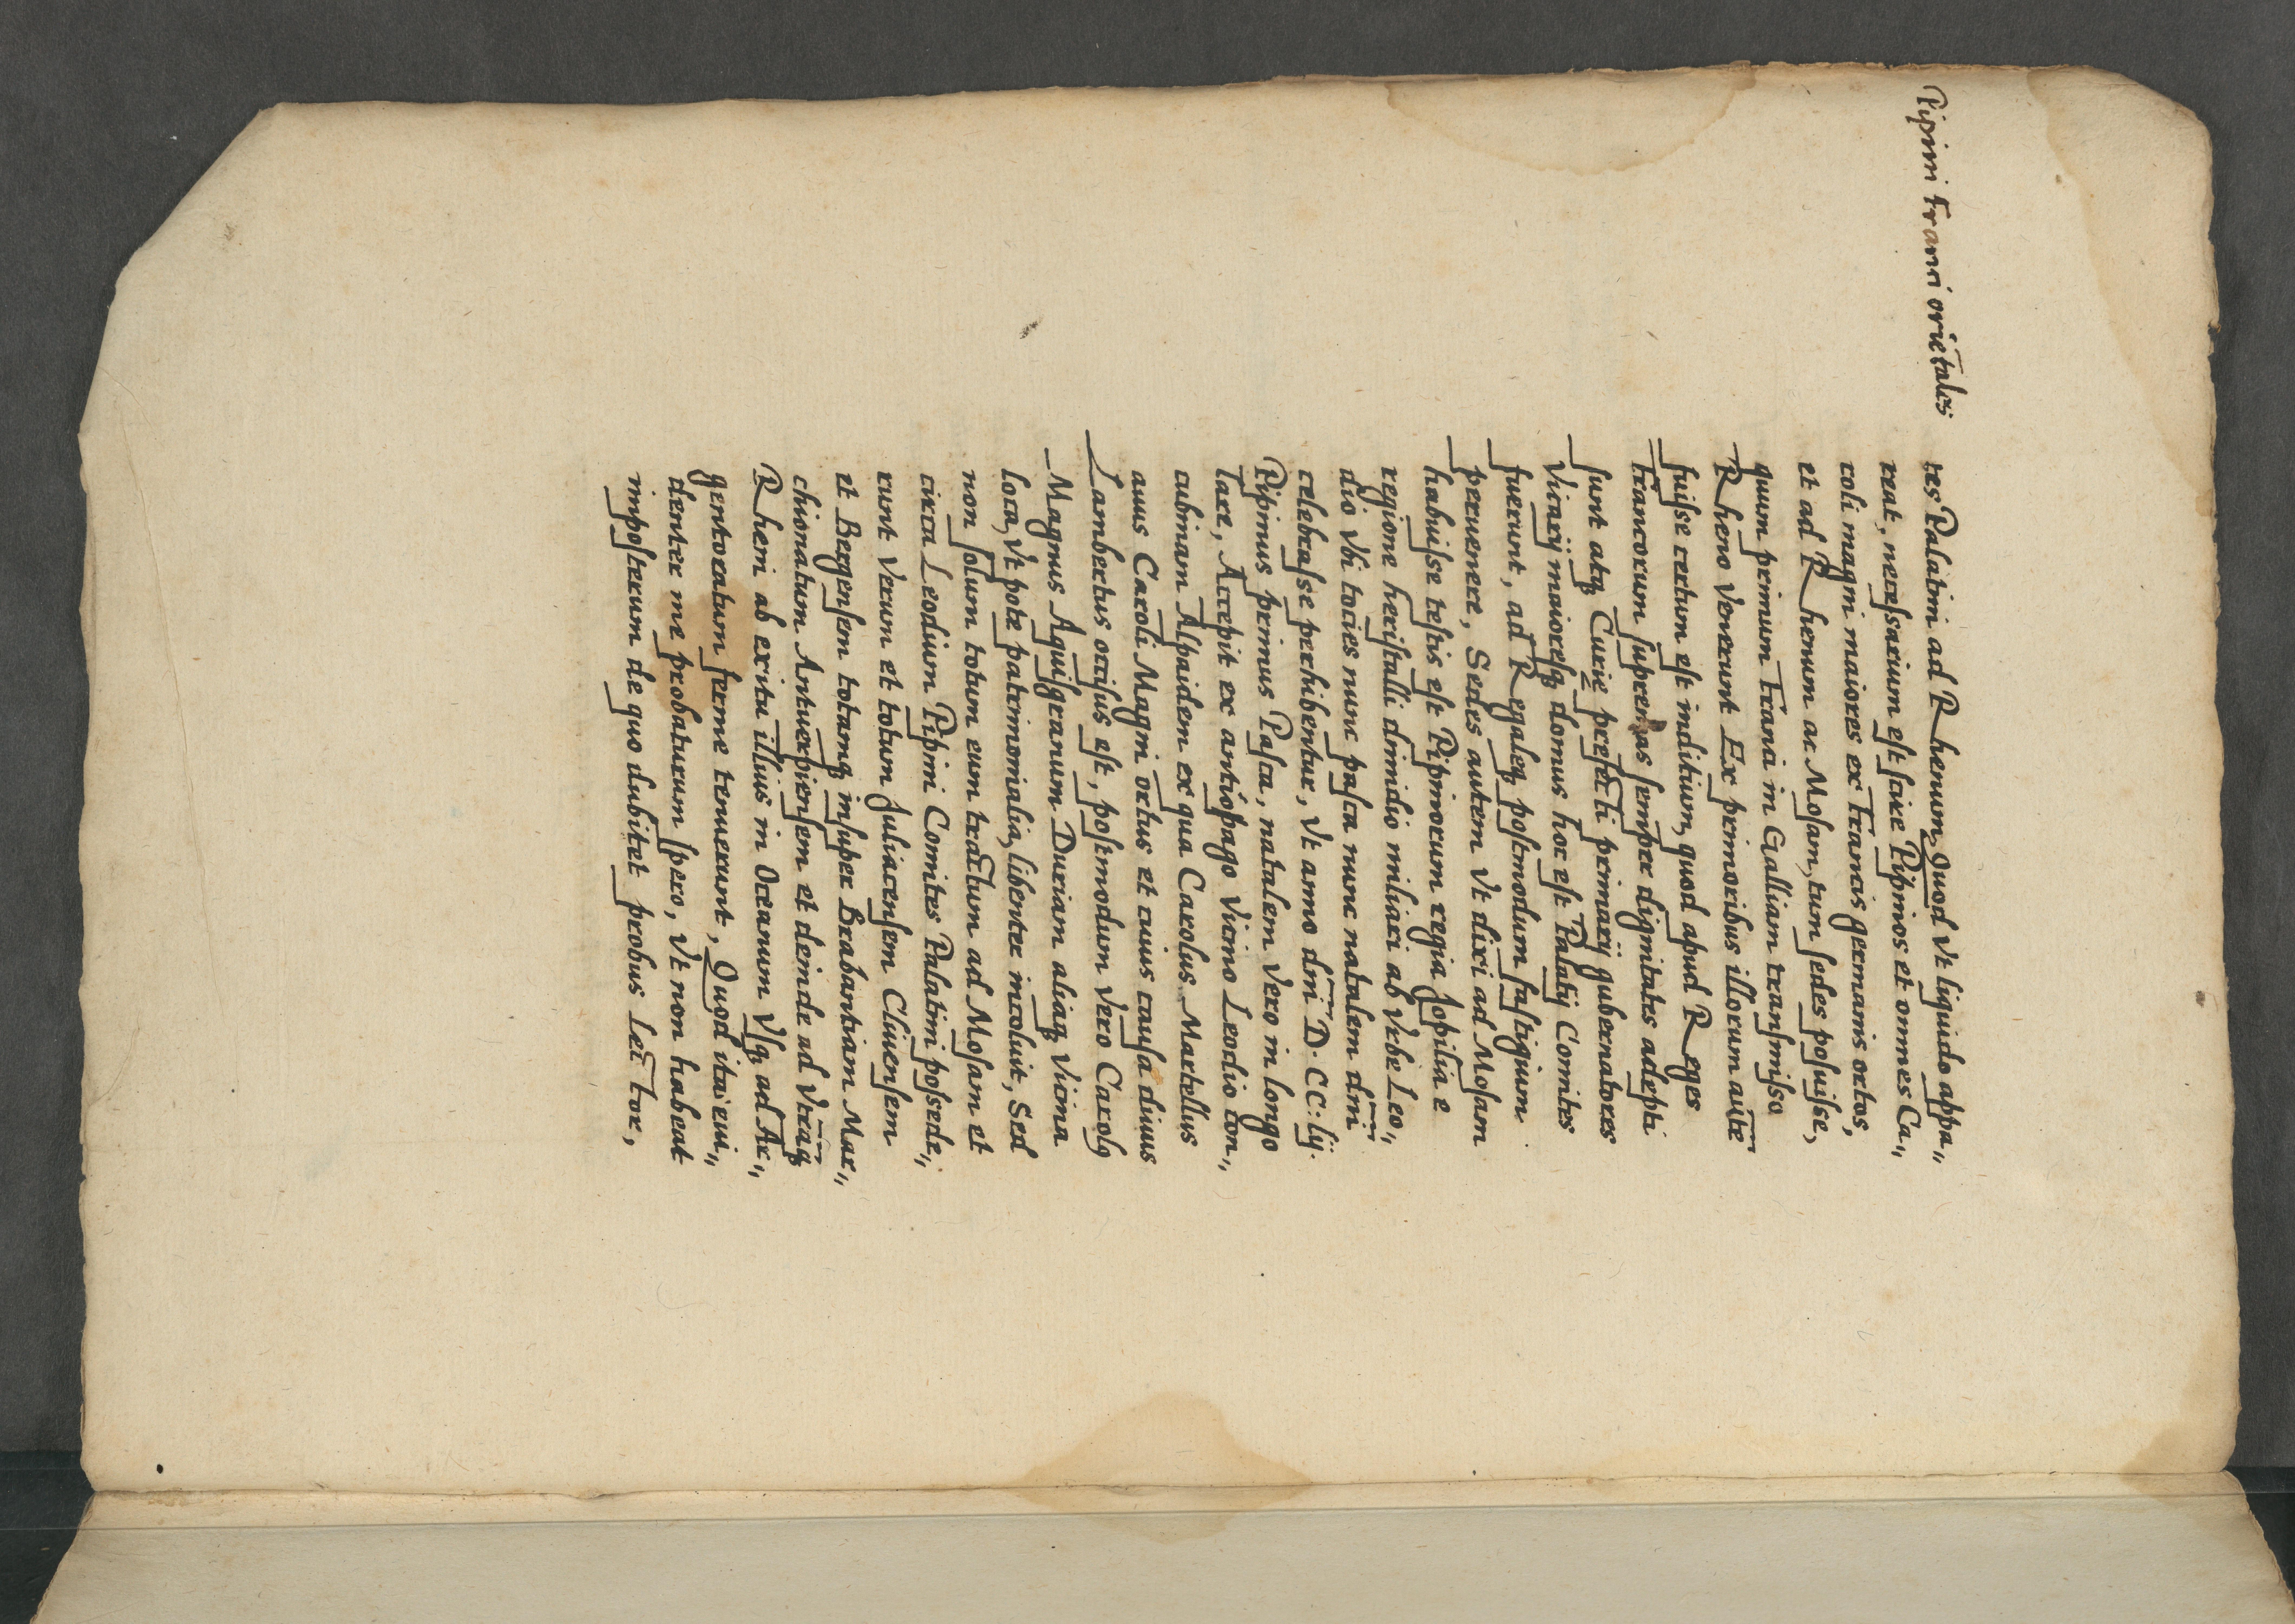 Pipini Franci oriētales
tes Palatini ad Rhenum, Quod vt liquido appa„
reat, necessarium est scire Pipinos et omnes Ca„
roli magni maiores ex Francis germanis ortos,
et ad Rhenum ac Mosam, tum sedes posuisse,
quum primum Franci in Galliam transmisso
Rheno venerunt Ex primoribus illorum autē
fuisse certum est inditium, quod apud Reges
francorum supremas semper dignitates adepti
sunt atq; Curię prefecti primarij gubernatores
Vicarij maioresq; domus hoc est Palatij Comites
fuerunt, ad Regaleq; postmodum fastigium
peruenere, Sedes autem vt dixi ad Mosam
habuisse testis est Pipinorum regia Jopilia e
regione heristalli dimidio miliari ab vrbe Leo„
dio vbi tocies nunc pasca nunc natalem dnī
celebrasse perhibentur, vt anno dnī D·CC:lij·
Pipinus primus Pasca, natalem vero in longo
lare, Accepit ex antiópago vicino Leodio con„
cubinam Alpaidem ex qua Carolus Martellus
auus Caroli Magni ortus et cuius causa diuus
Lambertus occisus est, postmodum vero Carolꝰ
Magnus Aquisgranum Duriam aliaq; vicina
loca, vt pote patrimonialia, libenter incoluit, Sed
non solum totum eum tractum ad Mosam et
circa Leodium Pipini Comites Palatini possede„
runt verum et totum Juliacensem Cliuensem
et Bergensem totamq; insuper Brabantiam Mar„
chionatum Antuerpiensem et deinde ad vtrāq;
Rheni ab exitu illius in Oceanum vsq; ad Ar„
gentoratum ferme tenuerunt, Quod ita eui„
denter me probaturum spero, vt non habeat
imposterum de quo dubitet probus Lector,